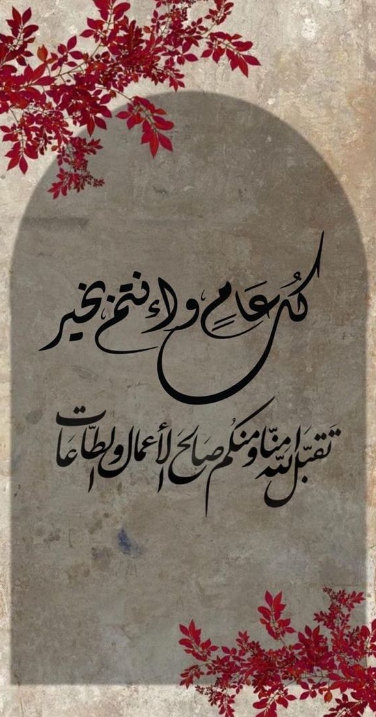 كُل عَامٍ وإنتم بخير
تَقبّل الله منّا ومنكُم صَالحَ الأعمال والطّاعَات